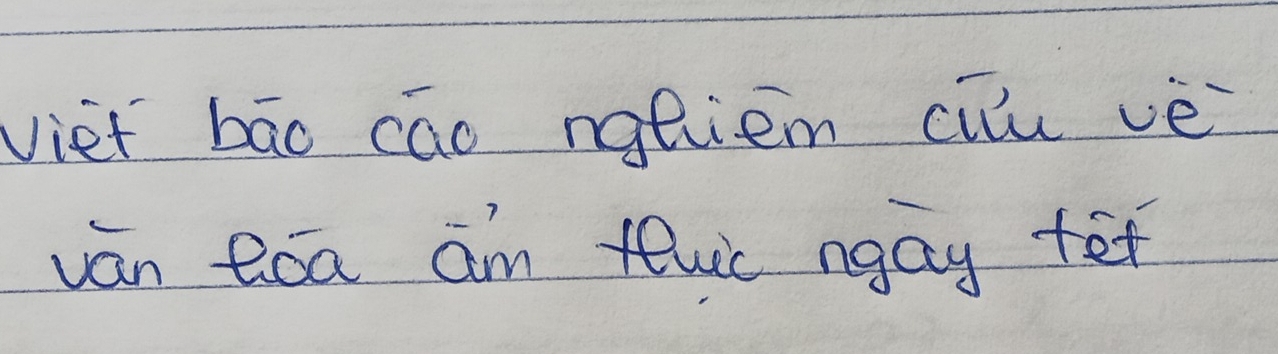 Viết báo cáo nghiêm cứu về
văn hóa ẩm thực ngày tết